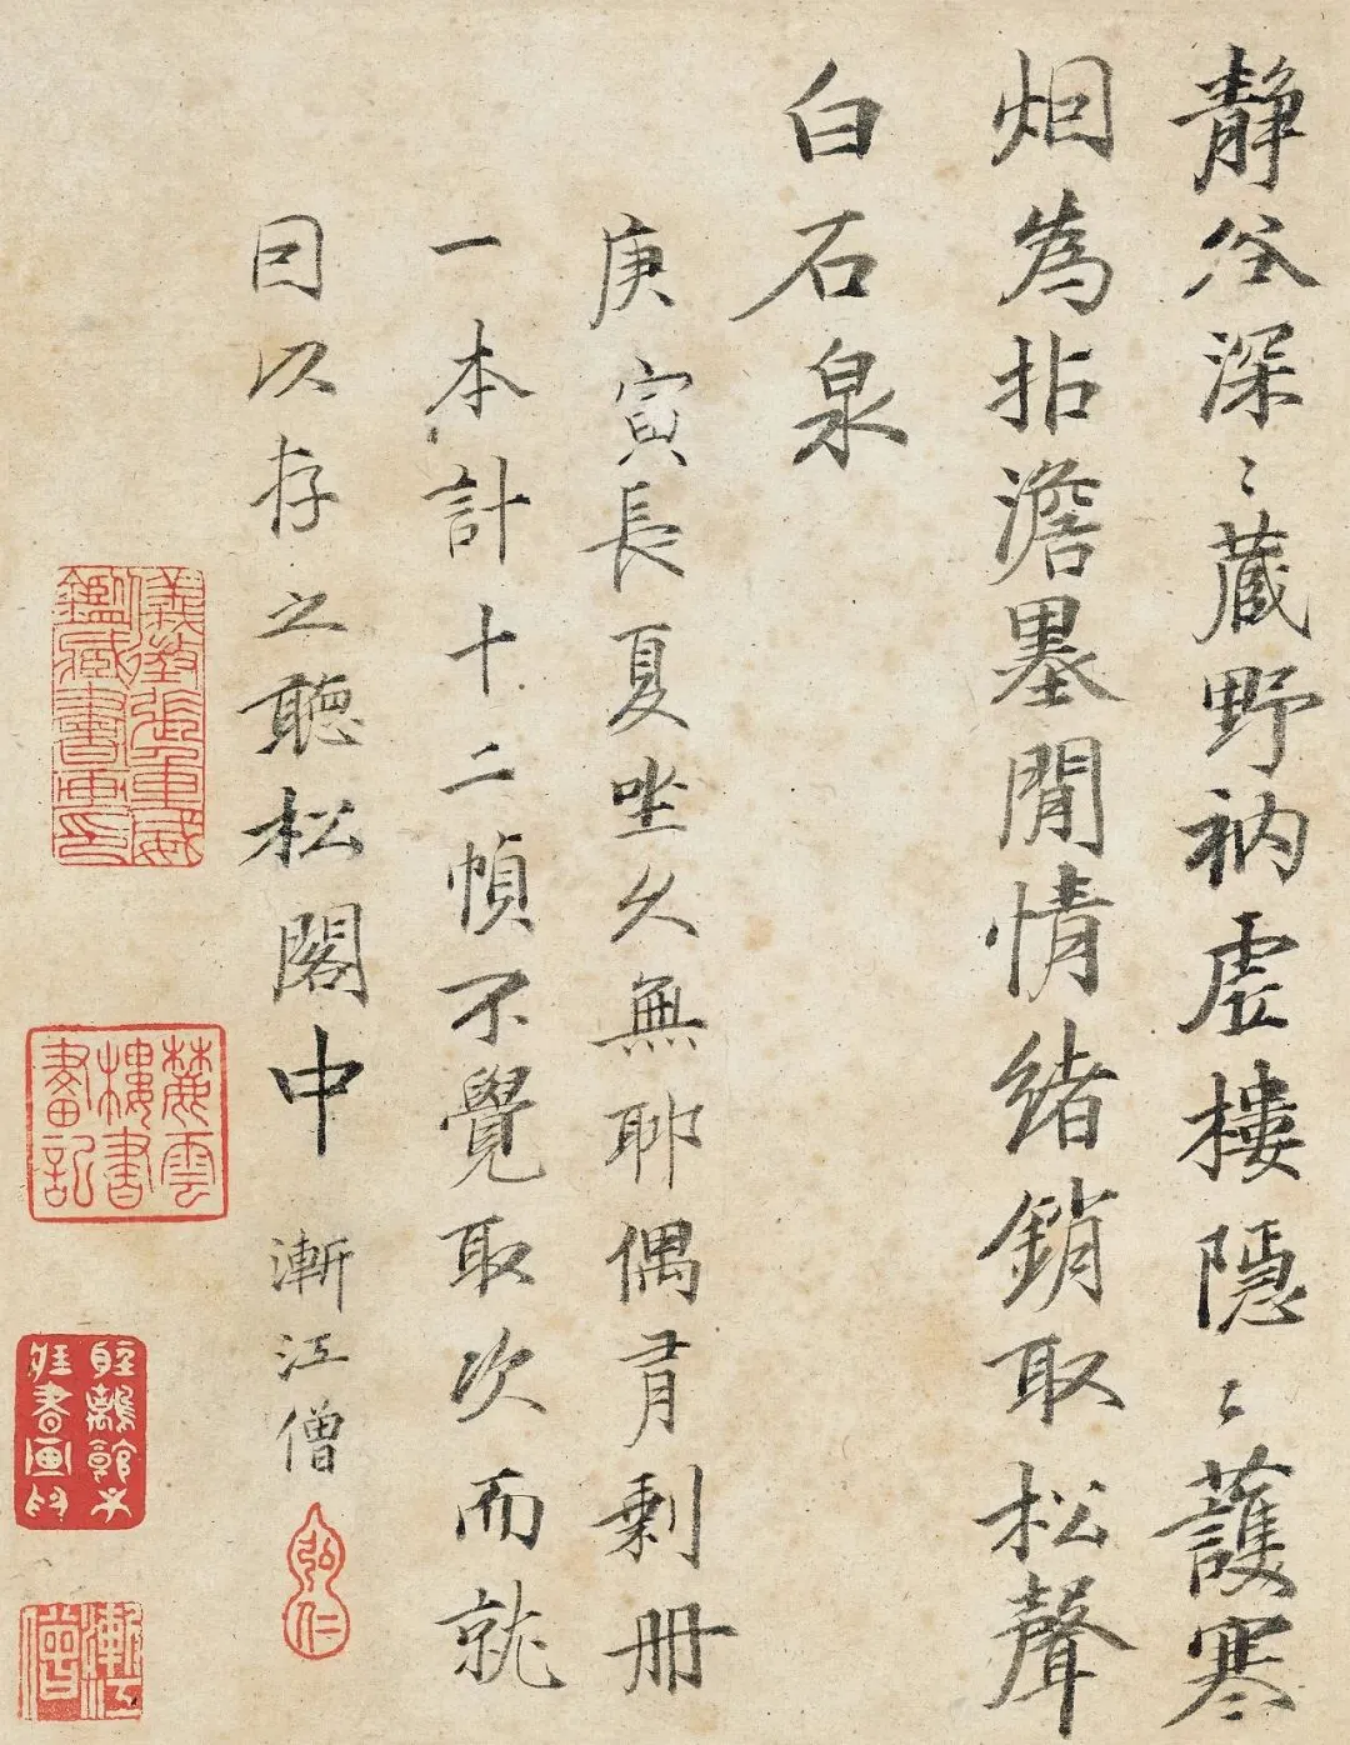 静谷深〻藏野衲虛樓隱〻護寒
烟為拈澹墨閒情緒銷取松聲
白石泉
庚寅長夏坐久無聊偶有剩册
一本計十二幀不覺取次而就
因以存之聽松閣中 漸江僧
弘仁
儀徵張重威
鑑臧書畫印
麓雲
樓書
畫記
書画印
漸江
僧